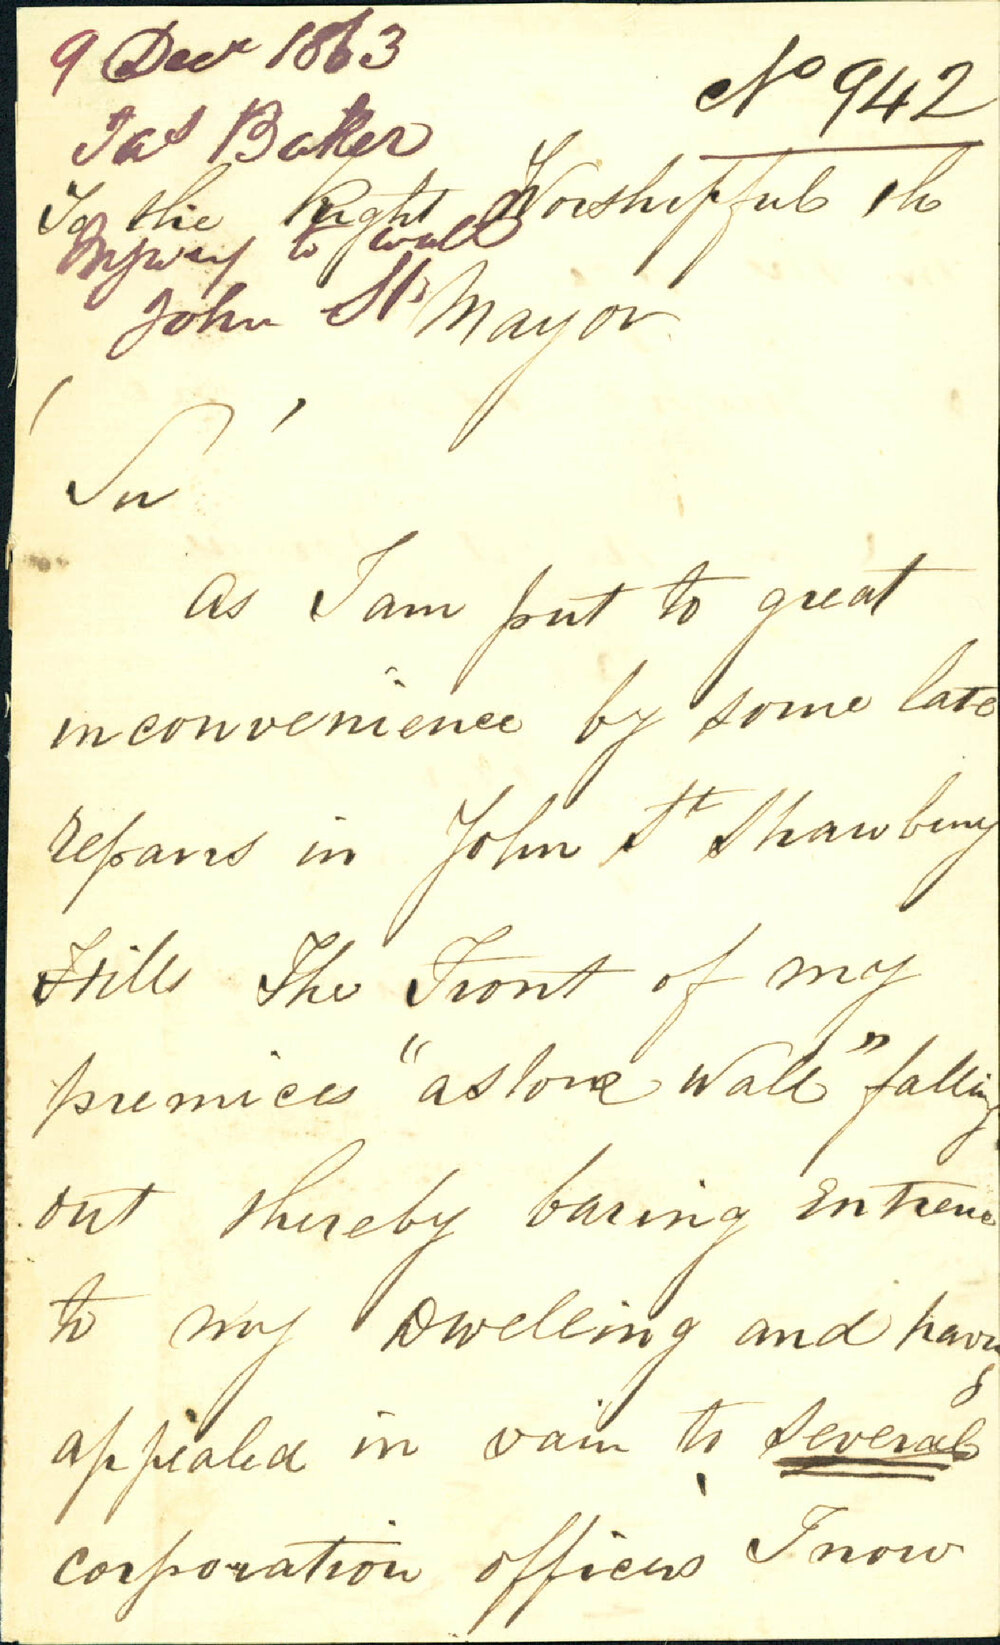 9 Decr 1863
No 942
Jas Baker
To the Right Worshipful the
Injury to wall
John St
Mayor
Sir
as I am put to great
inconvenience by some late
repairs in John St Strawberry
Hills The Front of my
premices "a stone Wall" falling
out thereby baring Entrence
to my Dwelling and having
appealed in vain to several
corporation officers I now